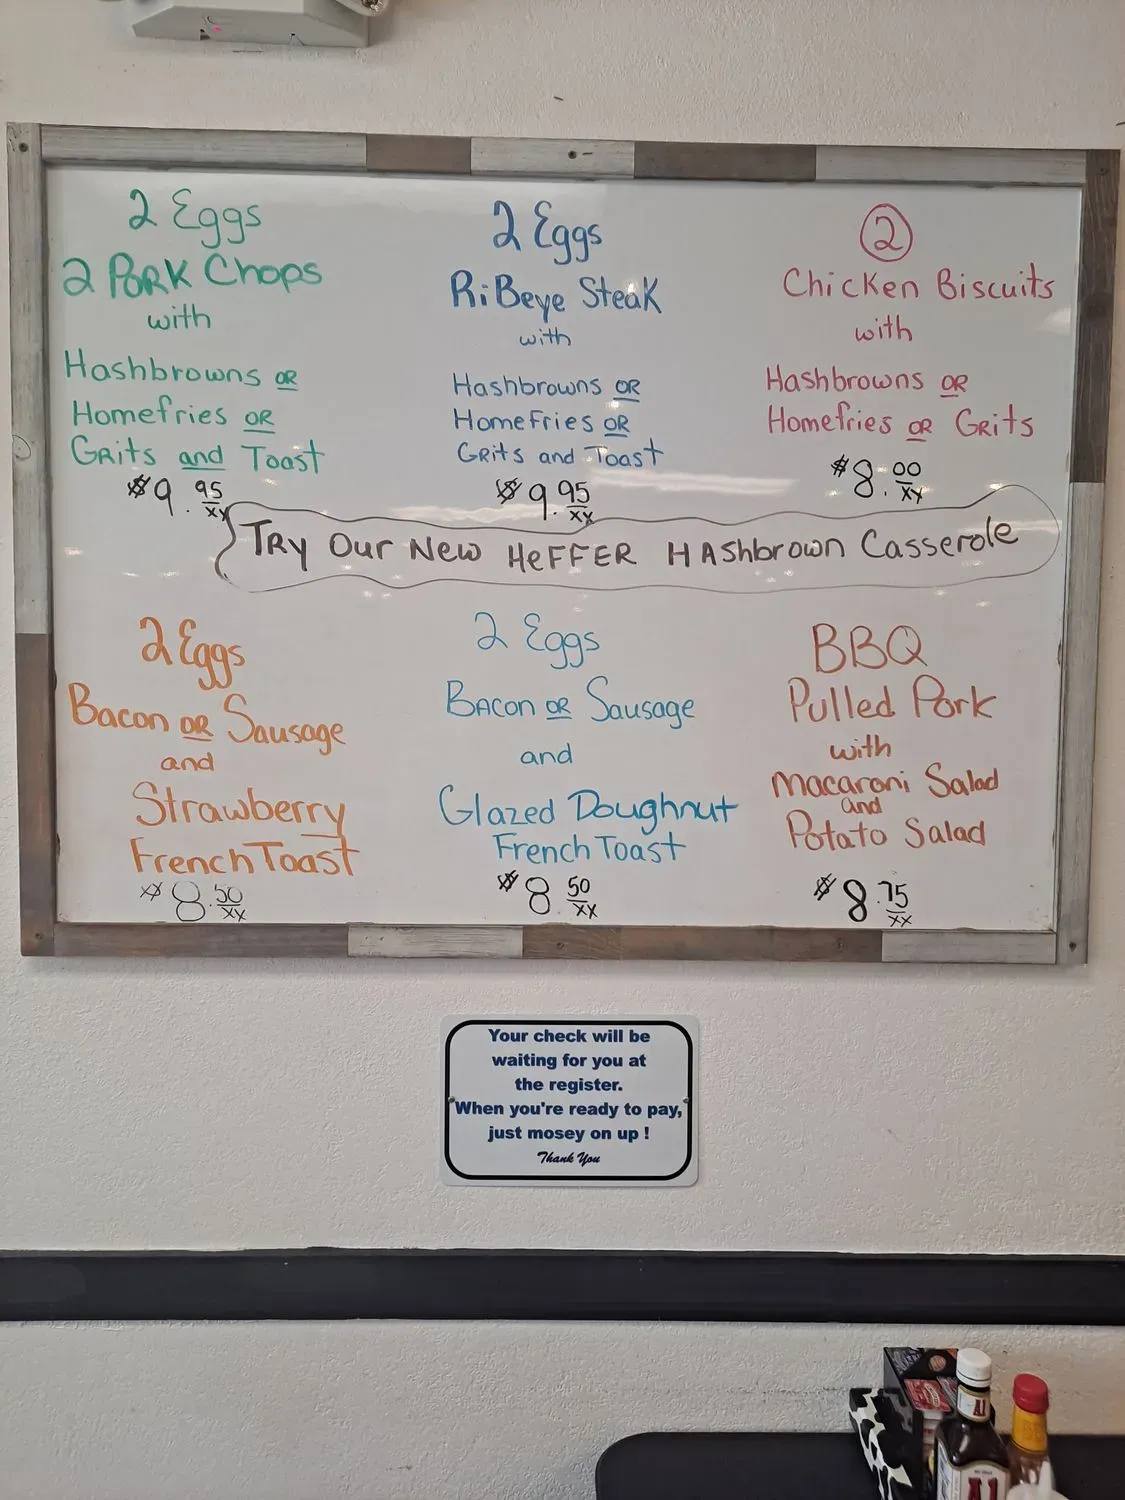 2 Eggs
2 Pork Chops
with
Hashbrowns OR
Homefries OR
Grits and Toast
$9.95/xx
2 Eggs
RiBeye Steak
with
Hashbrowns OR
Homefries OR
Grits and Toast
$9.95/xx
2
Chicken Biscuits
with
Hashbrowns OR
Homefries OR Grits
$8.00/xx
Try Our New HEFFER HAshbrown Casserole
2 Eggs
Bacon OR Sausage
and
Strawberry
French Toast
$8.50/xx
2 Eggs
Bacon OR Sausage
and
Glazed Doughnut
French Toast
$8.50/xx
BBQ
Pulled Pork
with
Macaroni Salad
and
Potato Salad
$8.75/xx
Your check will be
waiting for you at
the register.
When you're ready to pay,
just mosey on up !
Thank You
A1
A1